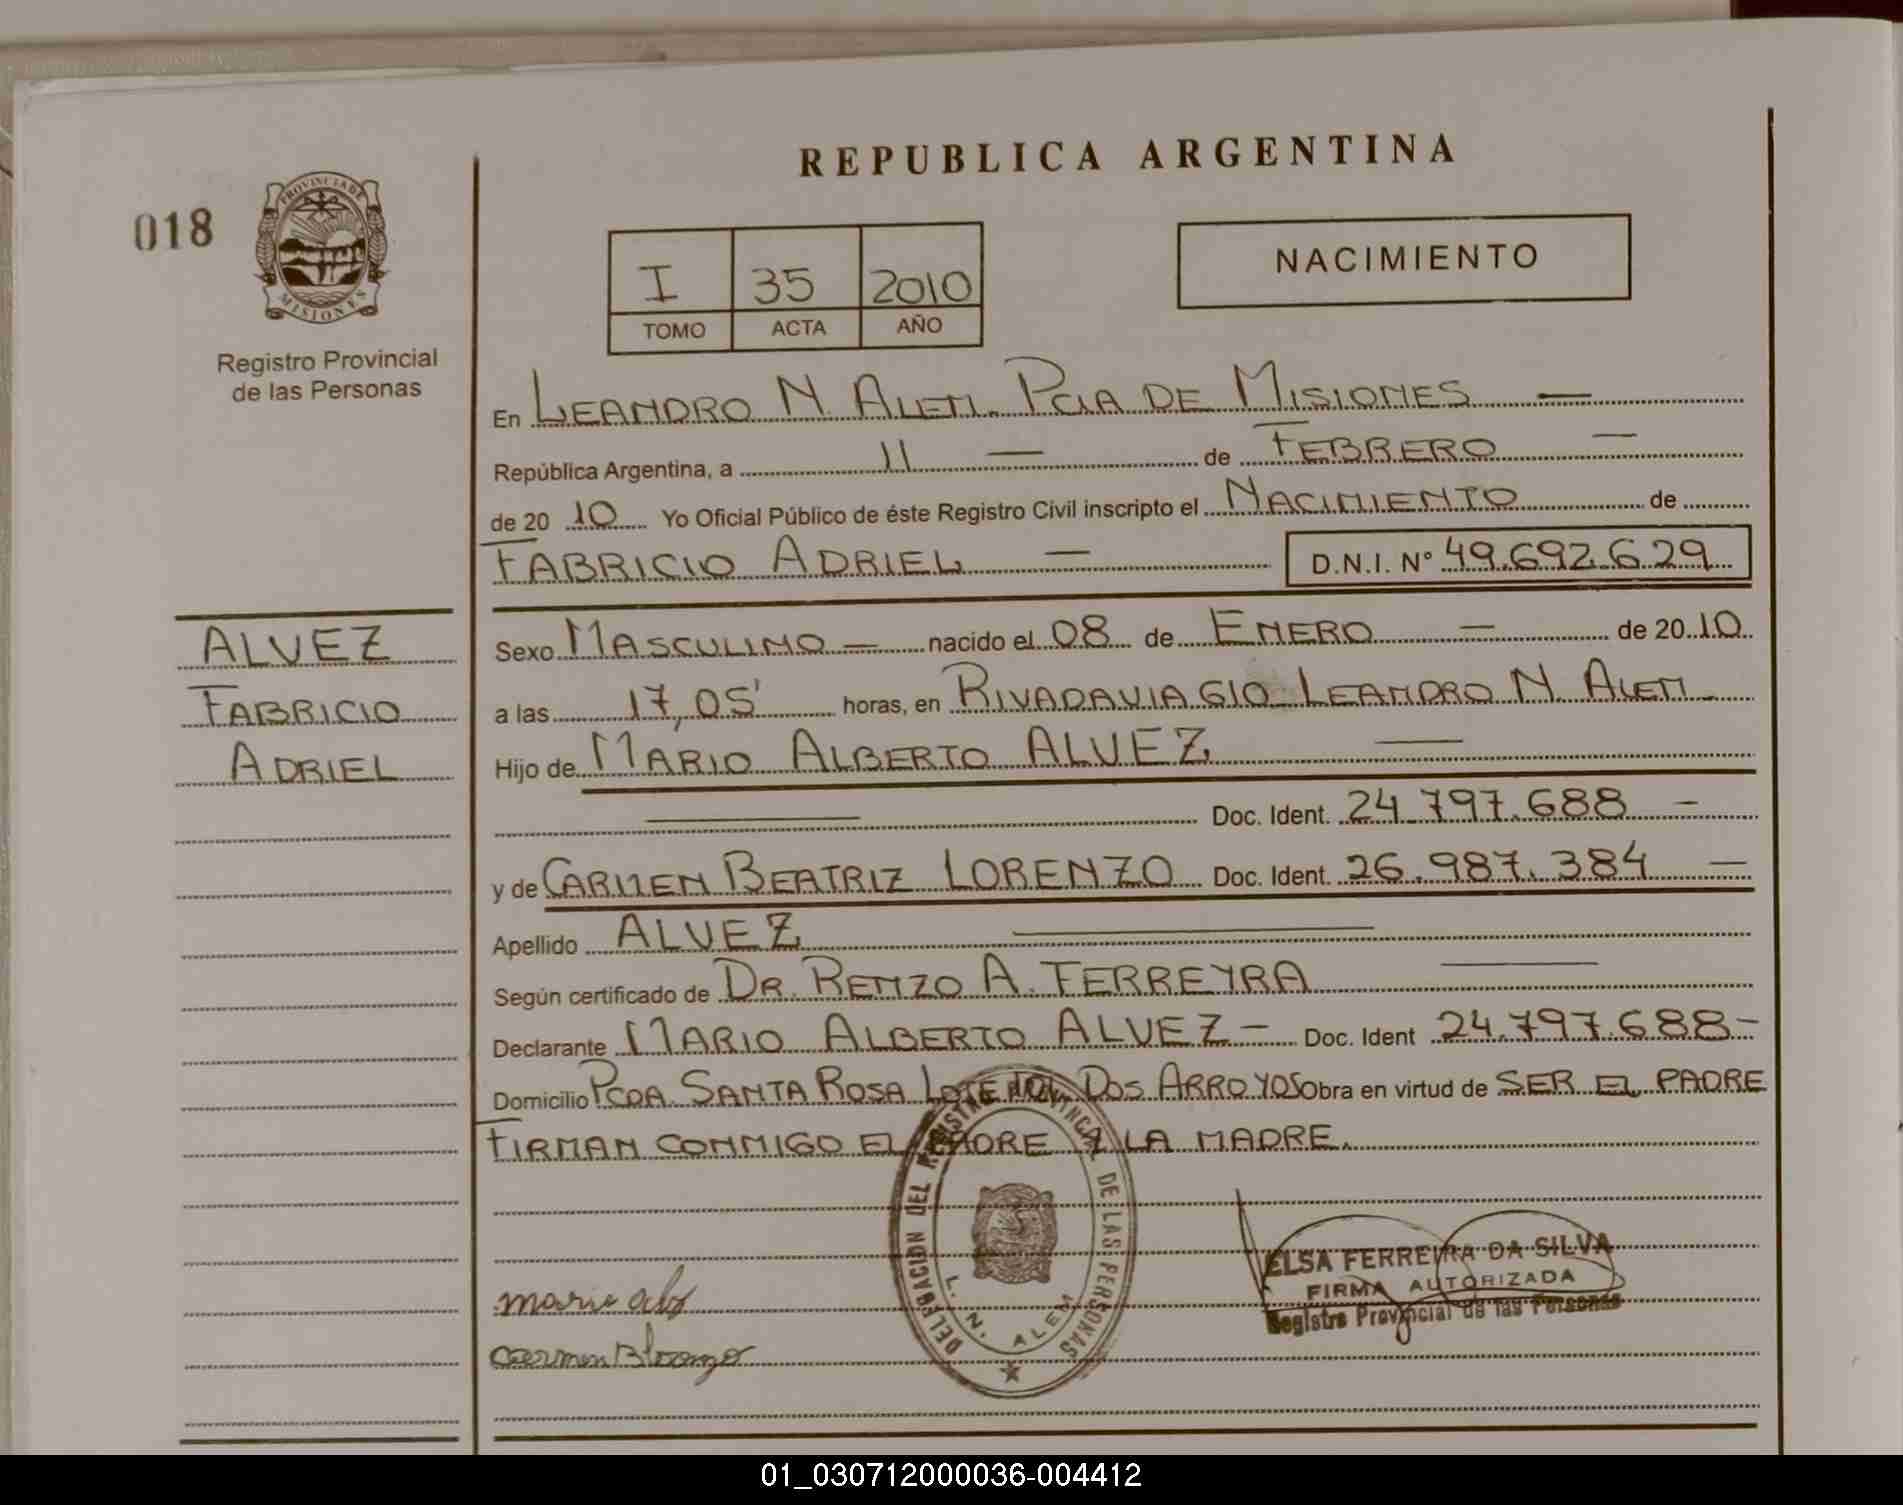 REPUBLICA ARGENTINA
018
PROVINCIA DE
MISIONES
Registro Provincial
de las Personas
I 35 2010
TOMO ACTA AÑO
NACIMIENTO
En LEANDRO N. ALEM. PCIA DE MISIONES —
República Argentina, a 11 — de FEBRERO —
de 20 10 Yo Oficial Público de éste Registro Civil inscripto el NACIMIENTO de
FABRICIO ADRIEL — D.N.I. Nº 49.692.629
ALVEZ
FABRICIO
ADRIEL
Sexo MASCULINO — nacido el 08 de ENERO — de 20 10
a las 17,05' horas, en RIVADAVIA 610 LEANDRO N. ALEM
Hijo de MARIO ALBERTO ALVEZ —
— Doc. Ident. 24.797.688 —
y de CARMEN BEATRIZ LORENZO Doc. Ident. 26.987.384 —
Apellido ALVEZ —
Según certificado de DR. RENZO A. FERREYRA —
Declarante MARIO ALBERTO ALVEZ — Doc. Ident 24.797.688 —
Domicilio PCDA. SANTA ROSA LOTE DOS ARROYOS Obra en virtud de SER EL PADRE
FIRMAN CONMIGO EL PADRE Y LA MADRE.
DELEGACION DEL REGISTRO PROVINCIAL DE LAS PERSONAS
L. N. ALEM
ELSA FERREIRA DA SILVA
FIRMA AUTORIZADA
Registro Provincial de las Personas
mario
carmen B
01_030712000036-004412